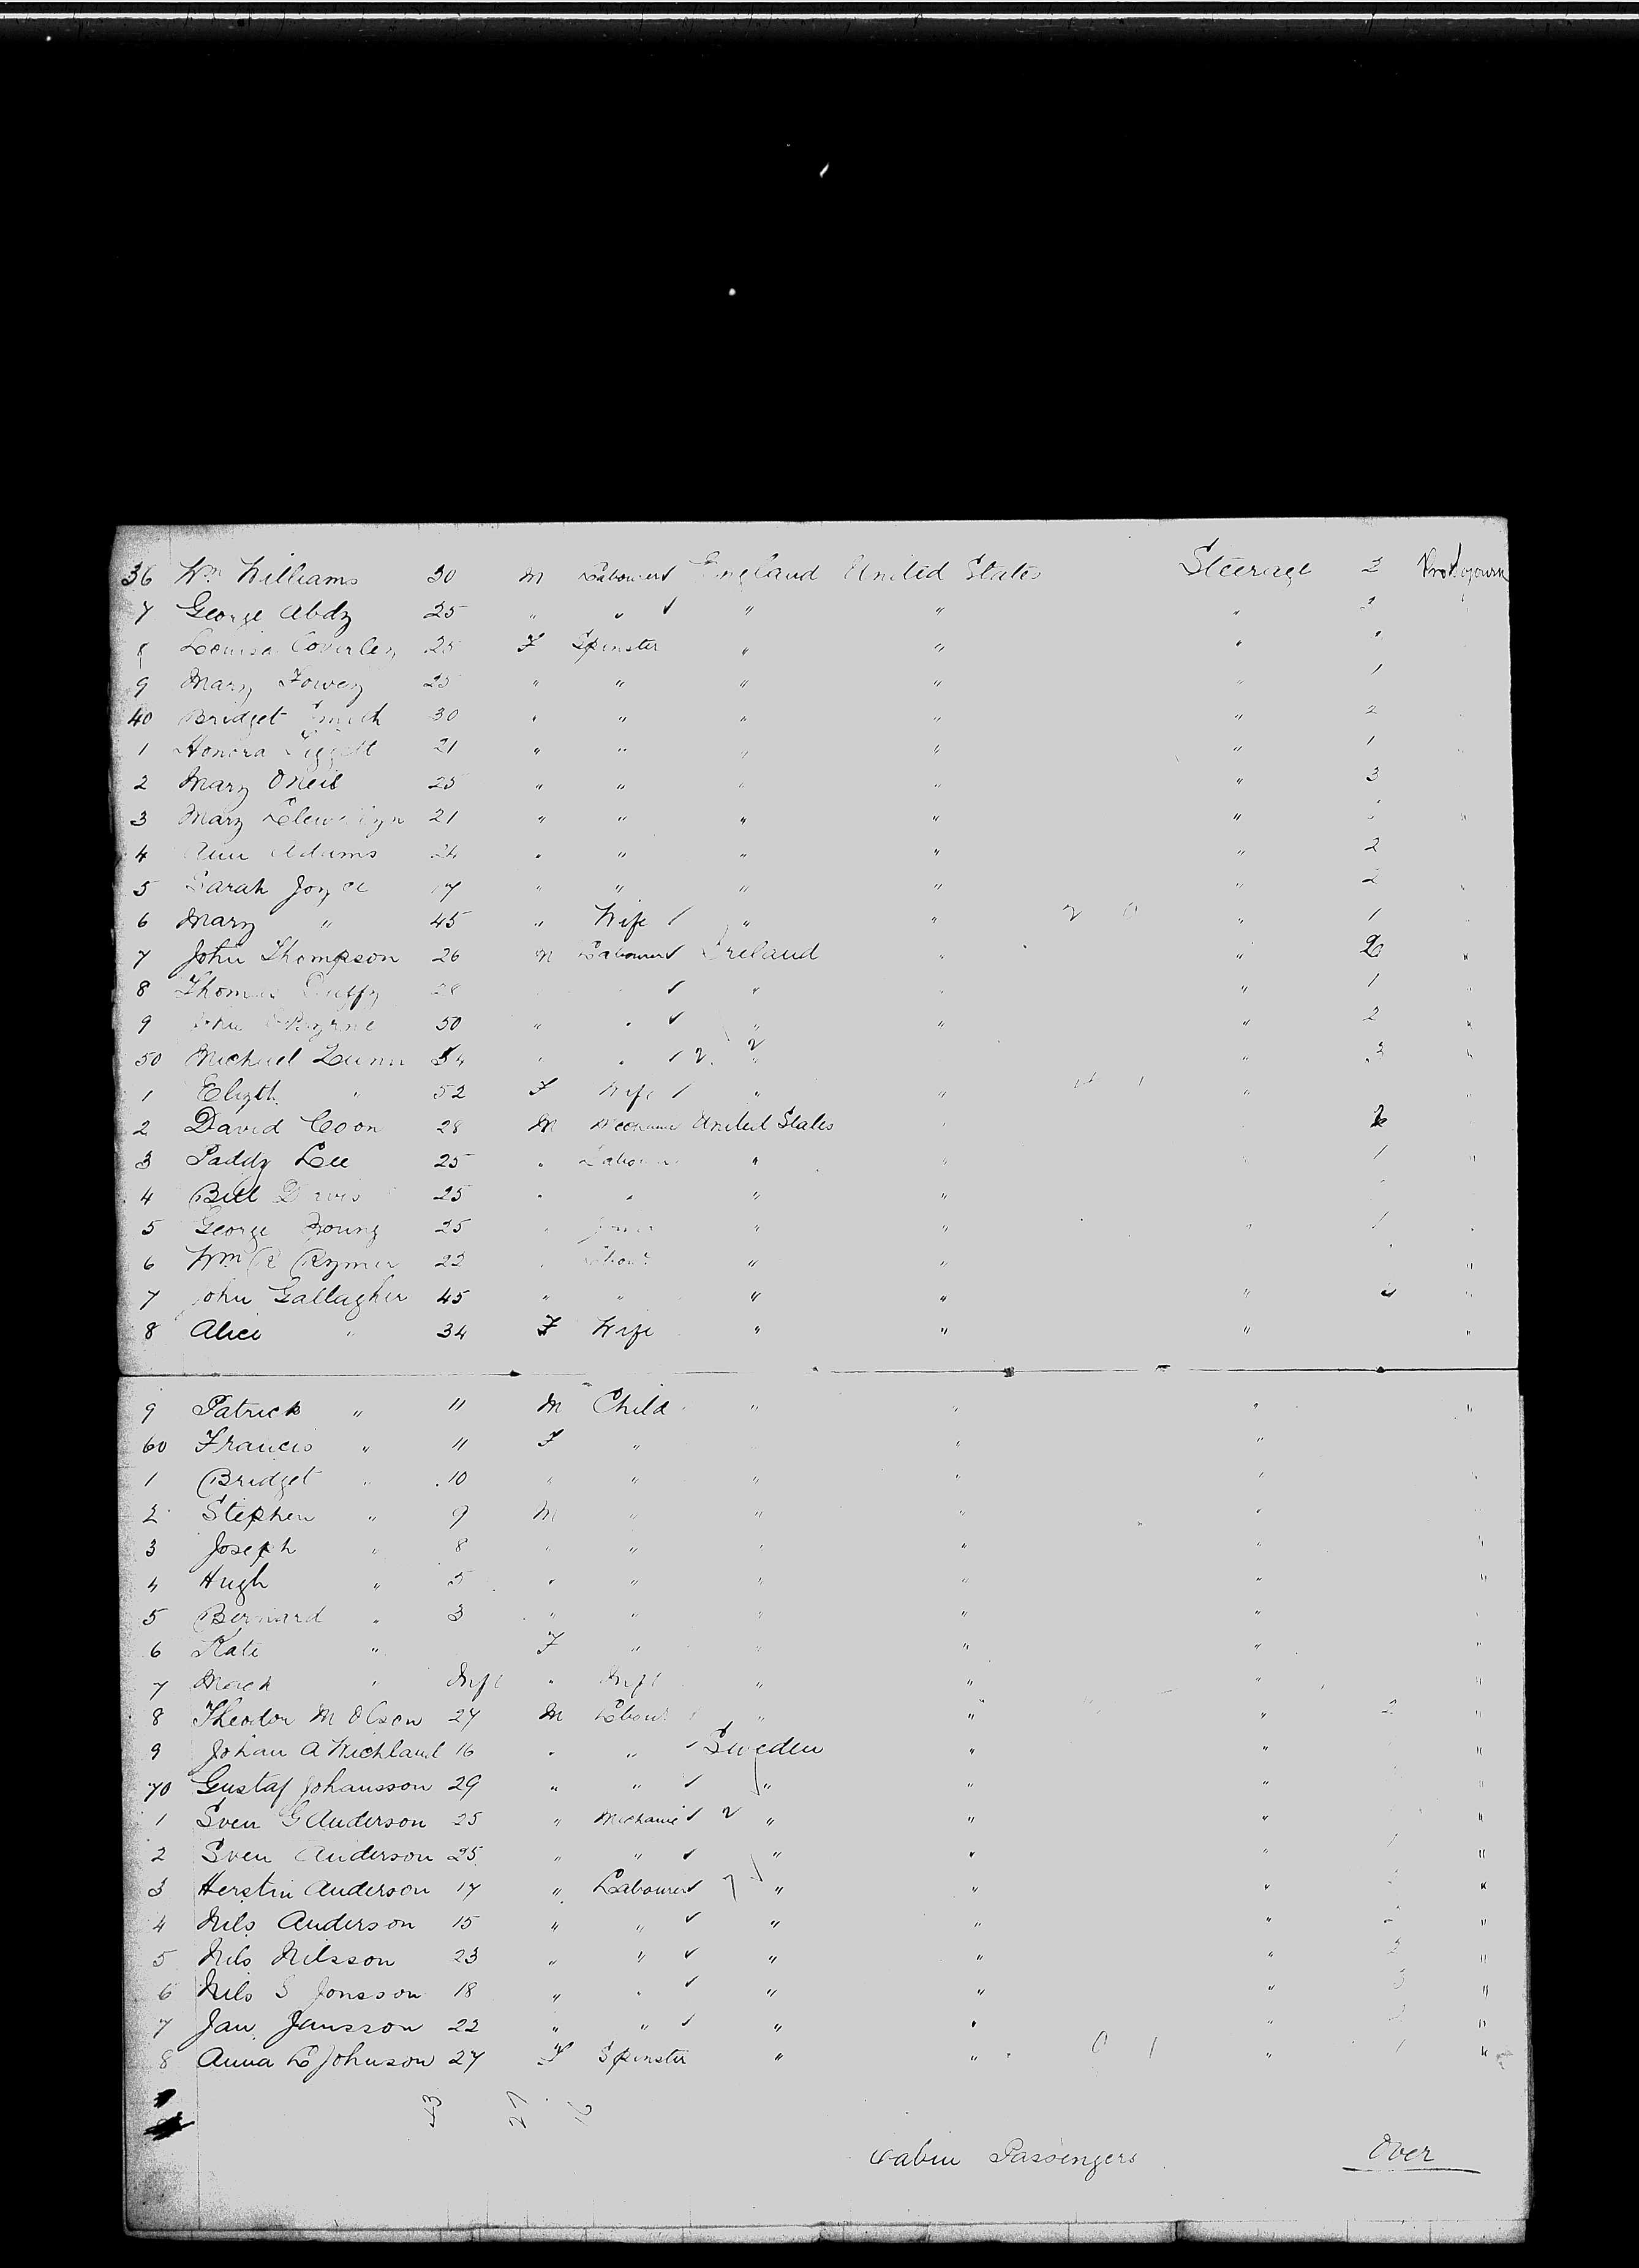 36 Wm Williams 30 M Labourer England United States Steerage 2
7 George Abdy 25 " " " " " 2
8 Louisa Coverley 25 F Spinster " " "
9 Mary Fowey 25 " " " " " 1
40 Bridget Smith 30 " " " " " 2
1 Honora 21 " " " " " 1
2 Mary ONeil 25 " " " " " 3
3 Mary Llewellyn 21 " " " " " "
4 Ann Adams 24 " " " " " 2
5 Sarah Joyce 17 " " " " " 2
6 Mary " 45 " Wife " " 2 0 " 1
7 John Thompson 26 M Labourer Ireland " " 2 "
8 Thomas Duffy 28 " " " 1 "
9 John OByrne 50 " " " " " 2 "
50 Michael Lunn 54 " " 2 2 " " 3 "
1 Elizth " 52 F Wife " " " "
2 David Coon 28 M Mechanic United States " 2
3 Paddy Lee 25 " Labourer " " 1 "
4 Bill Davis 25 " " " "
5 George Young 25 " " " " 1 "
6 Wm R Rymer 22 " Labour " " "
7 John Gallagher 45 " " " " " "
8 Alice " 34 F Wife " " " "
9 Patrick " 11 M Child " " " "
60 Francis " 11 F " " "
1 Bridget " 10 " " " " " "
2 Stephen " 9 M " " " "
3 Joseph " 8 " " " " " "
4 Hugh " 5 " " " " " "
5 Bernard " 3 " " " " " "
6 Kate " F " " " " "
7 " Inft " Inft " " " "
8 Theodor M Olsen 27 M Labour " " " 2 "
9 Johan A Wichland 16 " " Sweden " " "
70 Gustaf Johansson 29 " " " " " "
1 Sven G Anderson 25 " Mechanic 2 " " " "
2 Sven Anderson 25 " " " " " 1 "
3 Herstin Anderson 17 " Labourer " " " "
4 Nils Anderson 15 " " " " " 2 "
5 Nils Nilsson 23 " " " " " 2 "
6 Nils S Jonsson 18 " " " " " 3 "
7 Jan Jansson 22 " " " " " 2 "
8 Anna L Johnson 27 F Spinster " " 0 1 " 1 "
43 27 16
Cabin Passengers Over